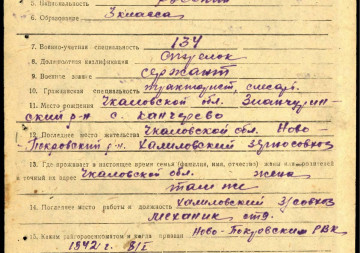 5. Национальность русский
6. Образование 3 класса
7. Военно-учетная специальность 134
8. Должностная квалификация стрелок
9. Военное звание сержант
10. Гражданская специальность тракторист, слесарь
11. Место рождения Чкаловской обл. Зианчурин-
ский р-н с. Канчерово
12. Последнее место жительства Чкаловской обл. Ново-
Покровский р-н. Халиловский зерносовхоз
13. Где проживает в настоящее время семья (фамилия, имя, отчество) жены или родителей
и точный их адрес Чкаловской обл. жена
там же
14. Последнее место работы и должность Халиловский з/совхоз
механик
15. Каким райгорвоенкоматом и когда призван Ново-Покровским РВК
1942 г.